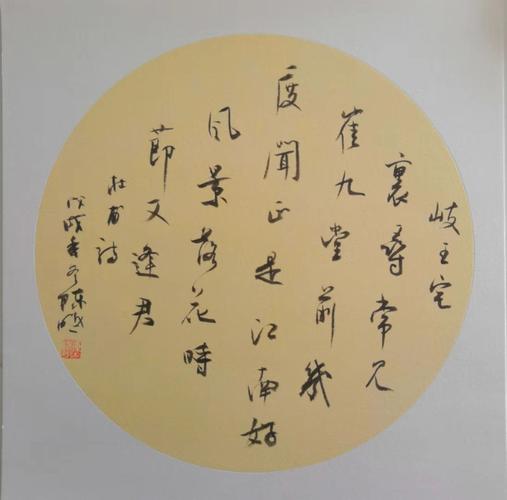 岐王宅
裏尋常見
崔九堂前幾
度聞正是江南好
風景落花時
節又逢君
杜甫詩